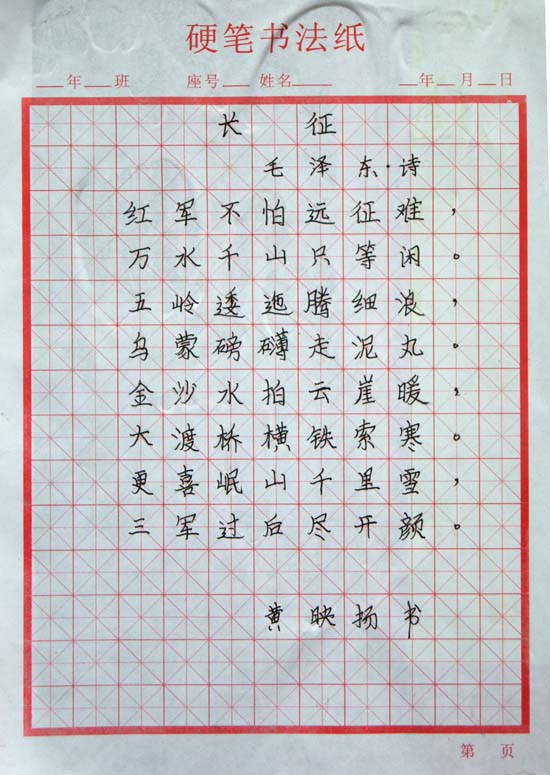 硬笔书法纸
__年__班 座号__ 姓名___ __年__月__日
长征
毛泽东·诗
红军不怕远征难，
万水千山只等闲。
五岭逶迤腾细浪，
乌蒙磅礴走泥丸。
金沙水拍云崖暖，
大渡桥横铁索寒。
更喜岷山千里雪，
三军过后尽开颜。
黄映扬书
第 页